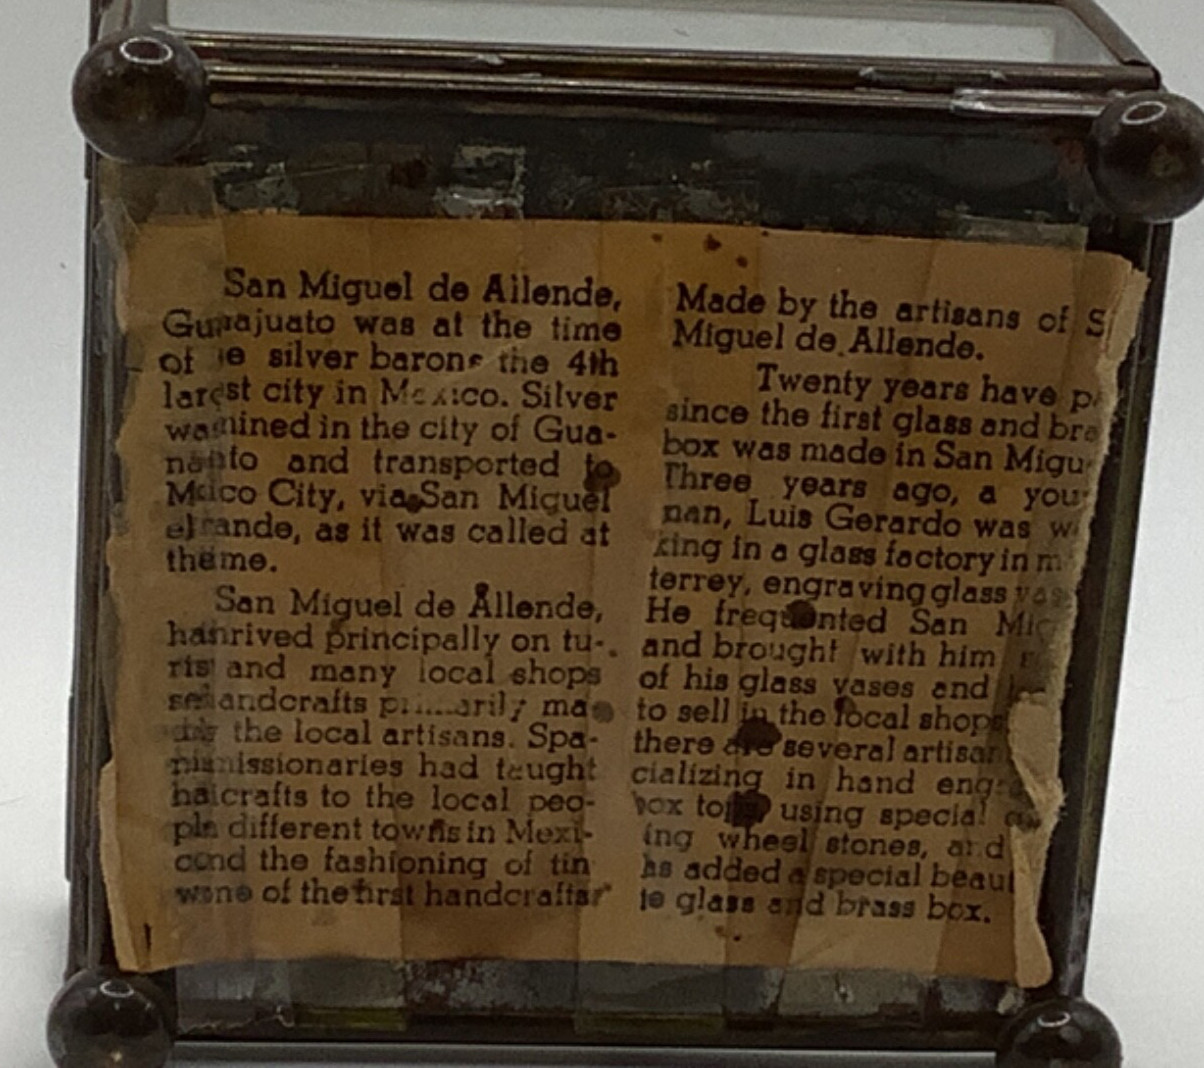 San Miguel de Allende,
Guanajuato was at the time
of silver barons the 4th
largest city in Mexico. Silver
mined in the city of Gua-
and transported to
City, via San Miguel
as it was called at

San Miguel de Allende,
principally on tu-
and many local shops
handcrafts primarily
the local artisans. Spa-
missionaries had taught
to the local peo-
different towns in Mexi-
the fashioning of tin
one of the first handcrafts
Made by the artisans of S
Miguel de Allende.
Twenty years have
since the first glass and bra
box was made in San Migu
Three years ago, a you
Luis Gerardo was
king in a glass factory in m
terrey, engraving glass
He frequented San
and brought with him
of his glass vases and
to sell in the local shops
there are several artisan
cializing in hand eng
box using special
ing wheel stones, and
as added a special beaut
glass and brass box.